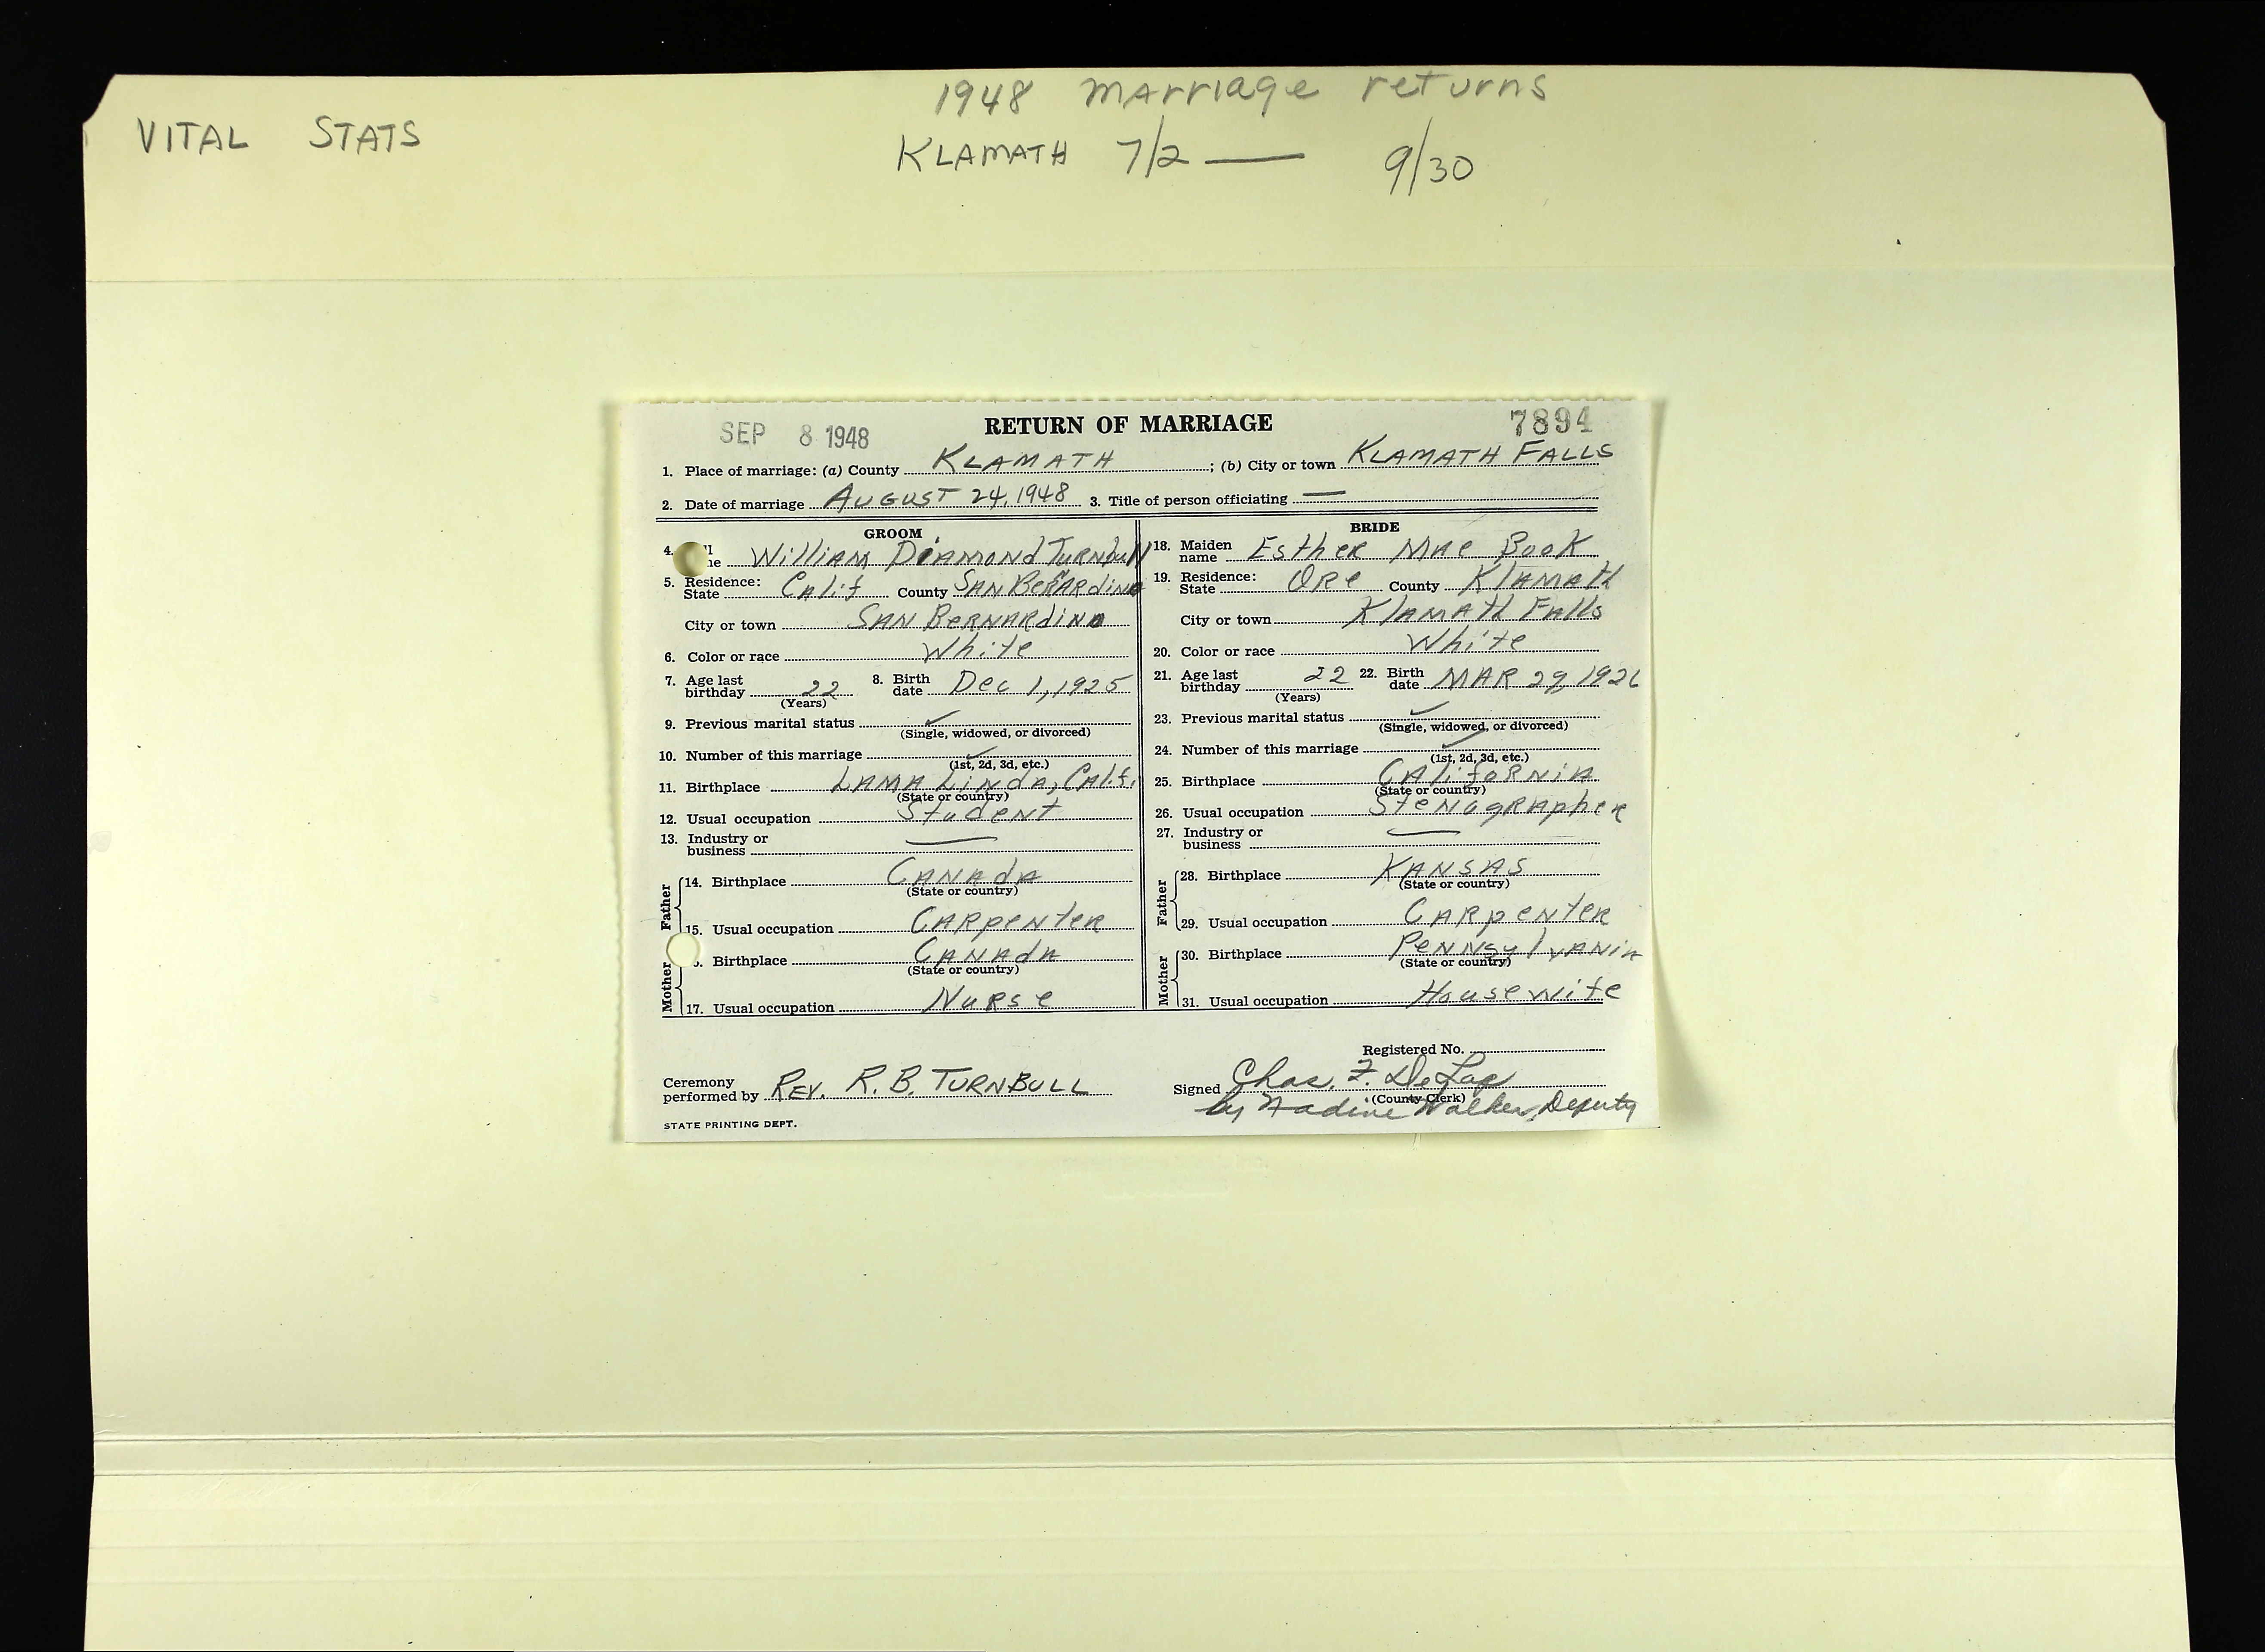 1948 marriage returns
VITAL STATS
KLAMATH 7/2 — 9/30
SEP 8 1948 RETURN OF MARRIAGE 7894
1. Place of marriage: (a) County KLAMATH ; (b) City or town KLAMATH FALLS
2. Date of marriage AUGUST 24, 1948 3. Title of person officiating —
GROOM
4. William Diamond Turnbull
5. Residence: State Calif County San Bernardino
City or town San Bernardino
6. Color or race White
7. Age last birthday 22 8. Birth date Dec 1, 1925
(Years)
9. Previous marital status ✓
(Single, widowed, or divorced)
10. Number of this marriage ✓
(1st, 2d, 3d, etc.)
11. Birthplace Lama Linda, Calif.
(State or country)
12. Usual occupation Student
13. Industry or business —
Father
14. Birthplace Canada
(State or country)
15. Usual occupation Carpenter
Mother
Birthplace Canada
(State or country)
17. Usual occupation Nurse
BRIDE
18. Maiden name Esther Mae Book
19. Residence: State Ore County Klamath
City or town Klamath Falls
20. Color or race White
21. Age last birthday 22 22. Birth date Mar 29, 1926
(Years)
23. Previous marital status ✓
(Single, widowed, or divorced)
24. Number of this marriage ✓
(1st, 2d, 3d, etc.)
25. Birthplace California
(State or country)
26. Usual occupation Stenographer
27. Industry or business —
Father
28. Birthplace Kansas
(State or country)
29. Usual occupation Carpenter
Mother
30. Birthplace Pennsylvania
(State or country)
31. Usual occupation Housewife
Registered No.
Ceremony performed by REV. R.B. TURNBULL
Signed Chas. F. DeLap
(County Clerk)
by Nadine Walker, Deputy
STATE PRINTING DEPT.